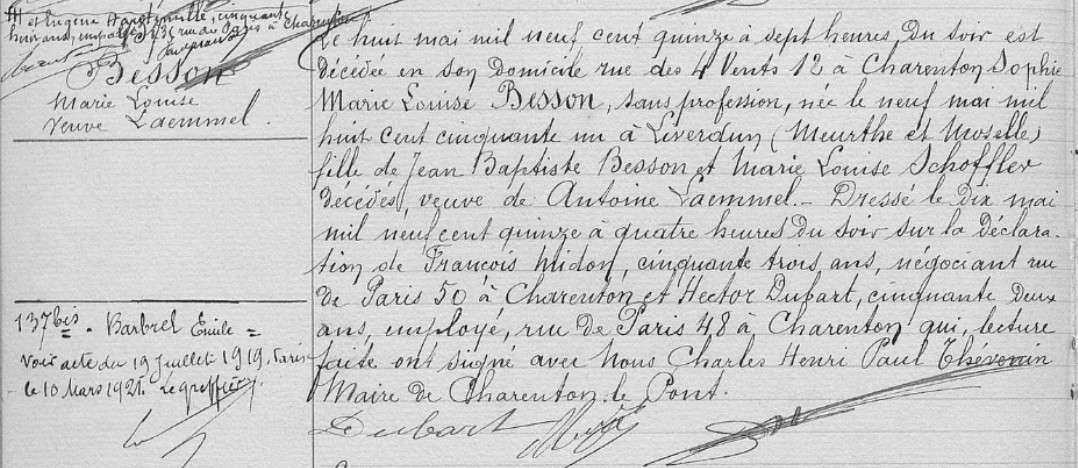 et Eugène
huit ans, employé, 31 rue de Paris à Charenton
Besson
Marie Louise
veuve Laemmel.
Le huit mai mil neuf cent quinze à sept heures du soir est
décédée en son domicile rue des 4 Vents 12 à Charenton Sophie
Marie Louise Besson, sans profession, née le neuf mai mil
huit cent cinquante un à Liverdun (Meurthe et Moselle)
fille de Jean Baptiste Besson et Marie Louise Schoffler
décédés, veuve de Antoine Laemmel.- Dressé le dix mai
mil neuf cent quinze à quatre heures du soir sur la déclara-
tion de François Midon, cinquante trois ans, négociant rue
de Paris 50 à Charenton et Hector Dubart, cinquante deux
ans, employé, rue de Paris 48 à Charenton qui, lecture
faite ont signé avec Nous Charles Henri Paul Thévenin
Maire de Charenton le Pont.
137bis. Barbrel Emile =
Voir acte du 19 Juillet 1919. Paris
le 10 Mars 1921. Le greffier,
Dubart